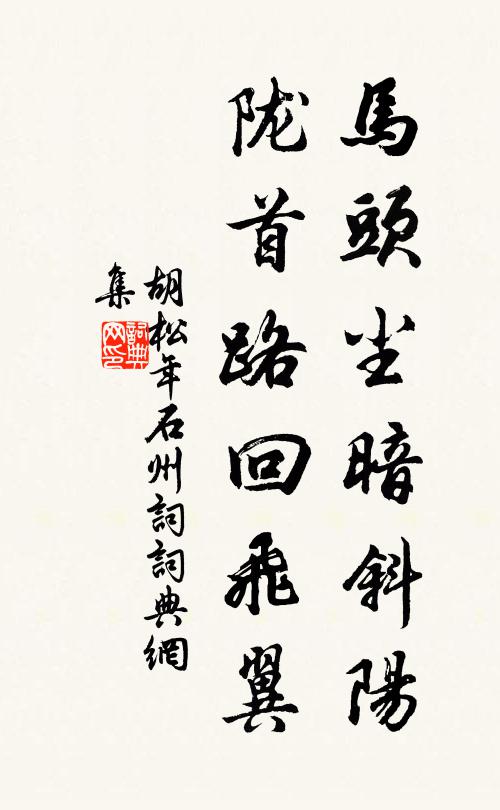 馬頭尘暗斜陽
陇首路回飛翼
胡松年石州詞詞典網
集
詞典网印